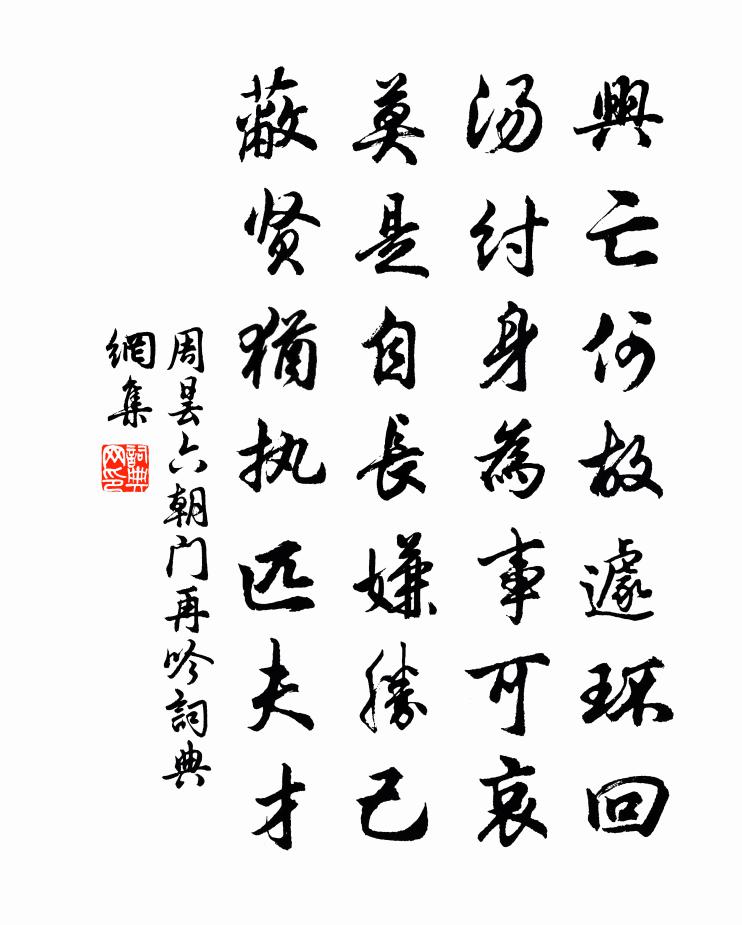 興亡何故遽环回
汤纣身為事可哀
莫是自長嫌勝己
蔽贤猶执匹夫才
周昙六朝门再吟詞典
網集
詞典网印